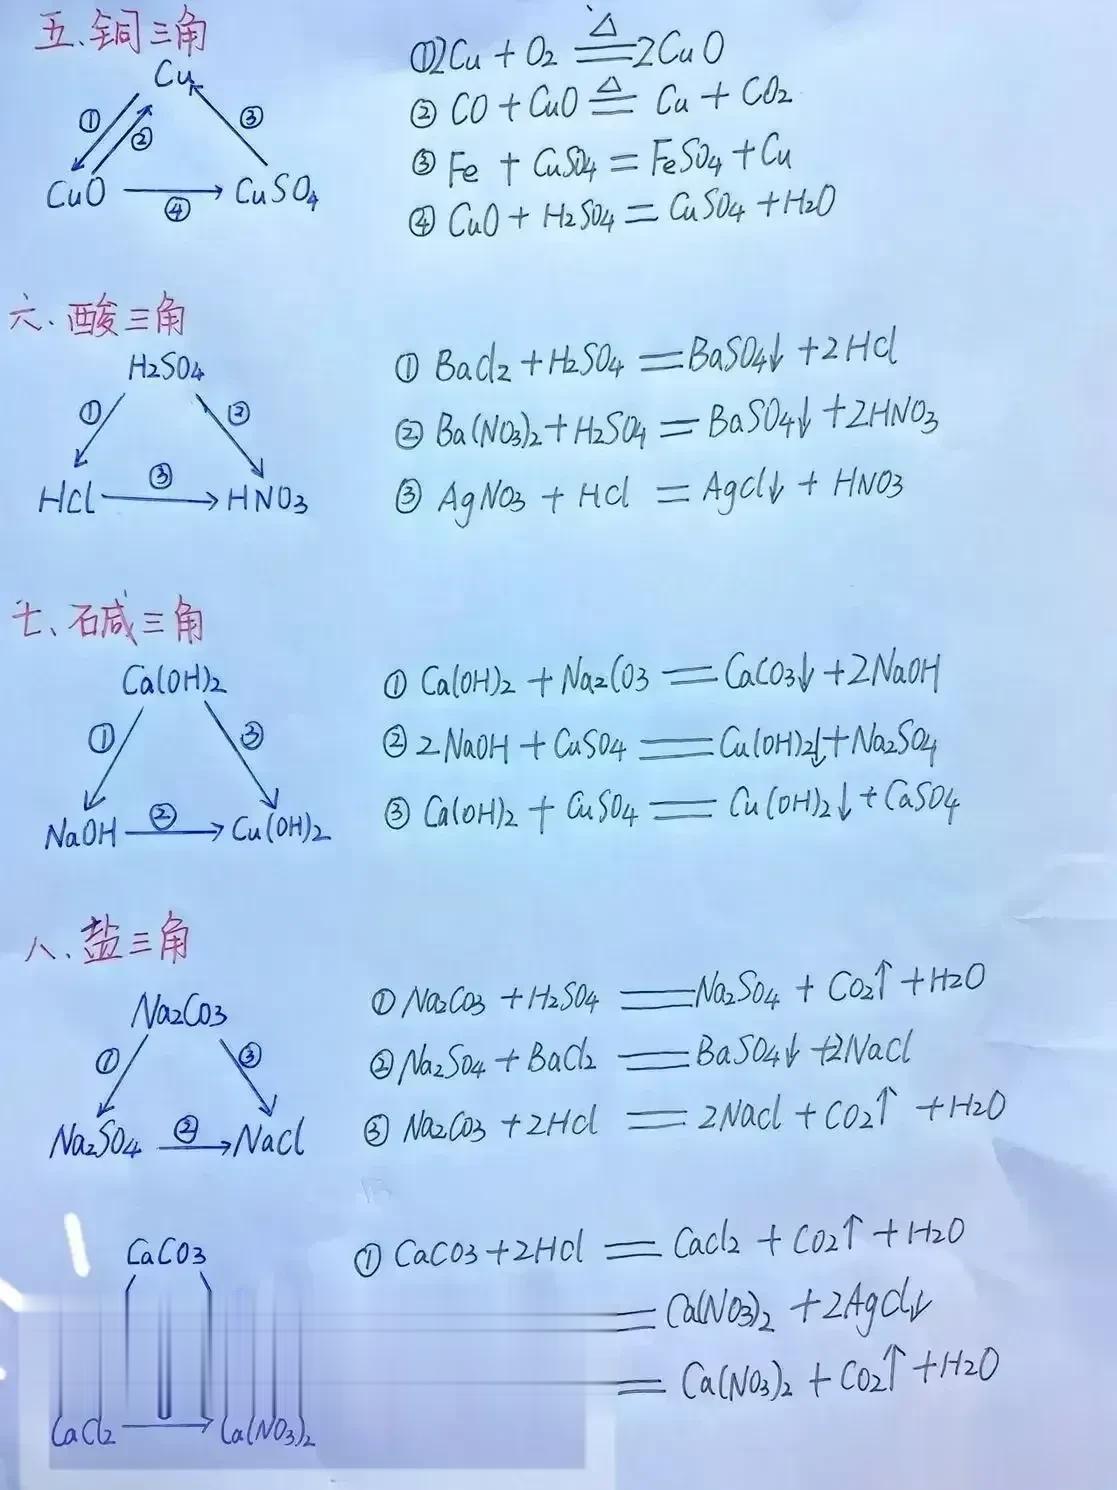 五、铜三角
Cu
① ② ③
CuO ④ CuSO₄
①2Cu + O₂ ≜ 2CuO
② CO + CuO ≜ Cu + CO₂
③ Fe + CuSO₄ = FeSO₄ + Cu
④ CuO + H₂SO₄ = CuSO₄ + H₂O
六、酸三角
H₂SO₄
① ②
HCl ③ HNO₃
① BaCl₂ + H₂SO₄ = BaSO₄↓ + 2HCl
② Ba(NO₃)₂ + H₂SO₄ = BaSO₄↓ + 2HNO₃
③ AgNO₃ + HCl = AgCl↓ + HNO₃
七、碱三角
Ca(OH)₂
① ③
NaOH ② Cu(OH)₂
① Ca(OH)₂ + Na₂CO₃ = CaCO₃↓ + 2NaOH
② 2NaOH + CuSO₄ = Cu(OH)₂↓ + Na₂SO₄
③ Ca(OH)₂ + CuSO₄ = Cu(OH)₂↓ + CaSO₄
八、盐三角
Na₂CO₃
① ③
Na₂SO₄ ② NaCl
① Na₂CO₃ + H₂SO₄ = Na₂SO₄ + CO₂↑ + H₂O
② Na₂SO₄ + BaCl₂ = BaSO₄↓ + 2NaCl
③ Na₂CO₃ + 2HCl = 2NaCl + CO₂↑ + H₂O
CaCO₃
CaCl₂ Ca(NO₃)₂
① CaCO₃ + 2HCl = CaCl₂ + CO₂↑ + H₂O
= Ca(NO₃)₂ + 2AgCl↓
= Ca(NO₃)₂ + CO₂↑ + H₂O